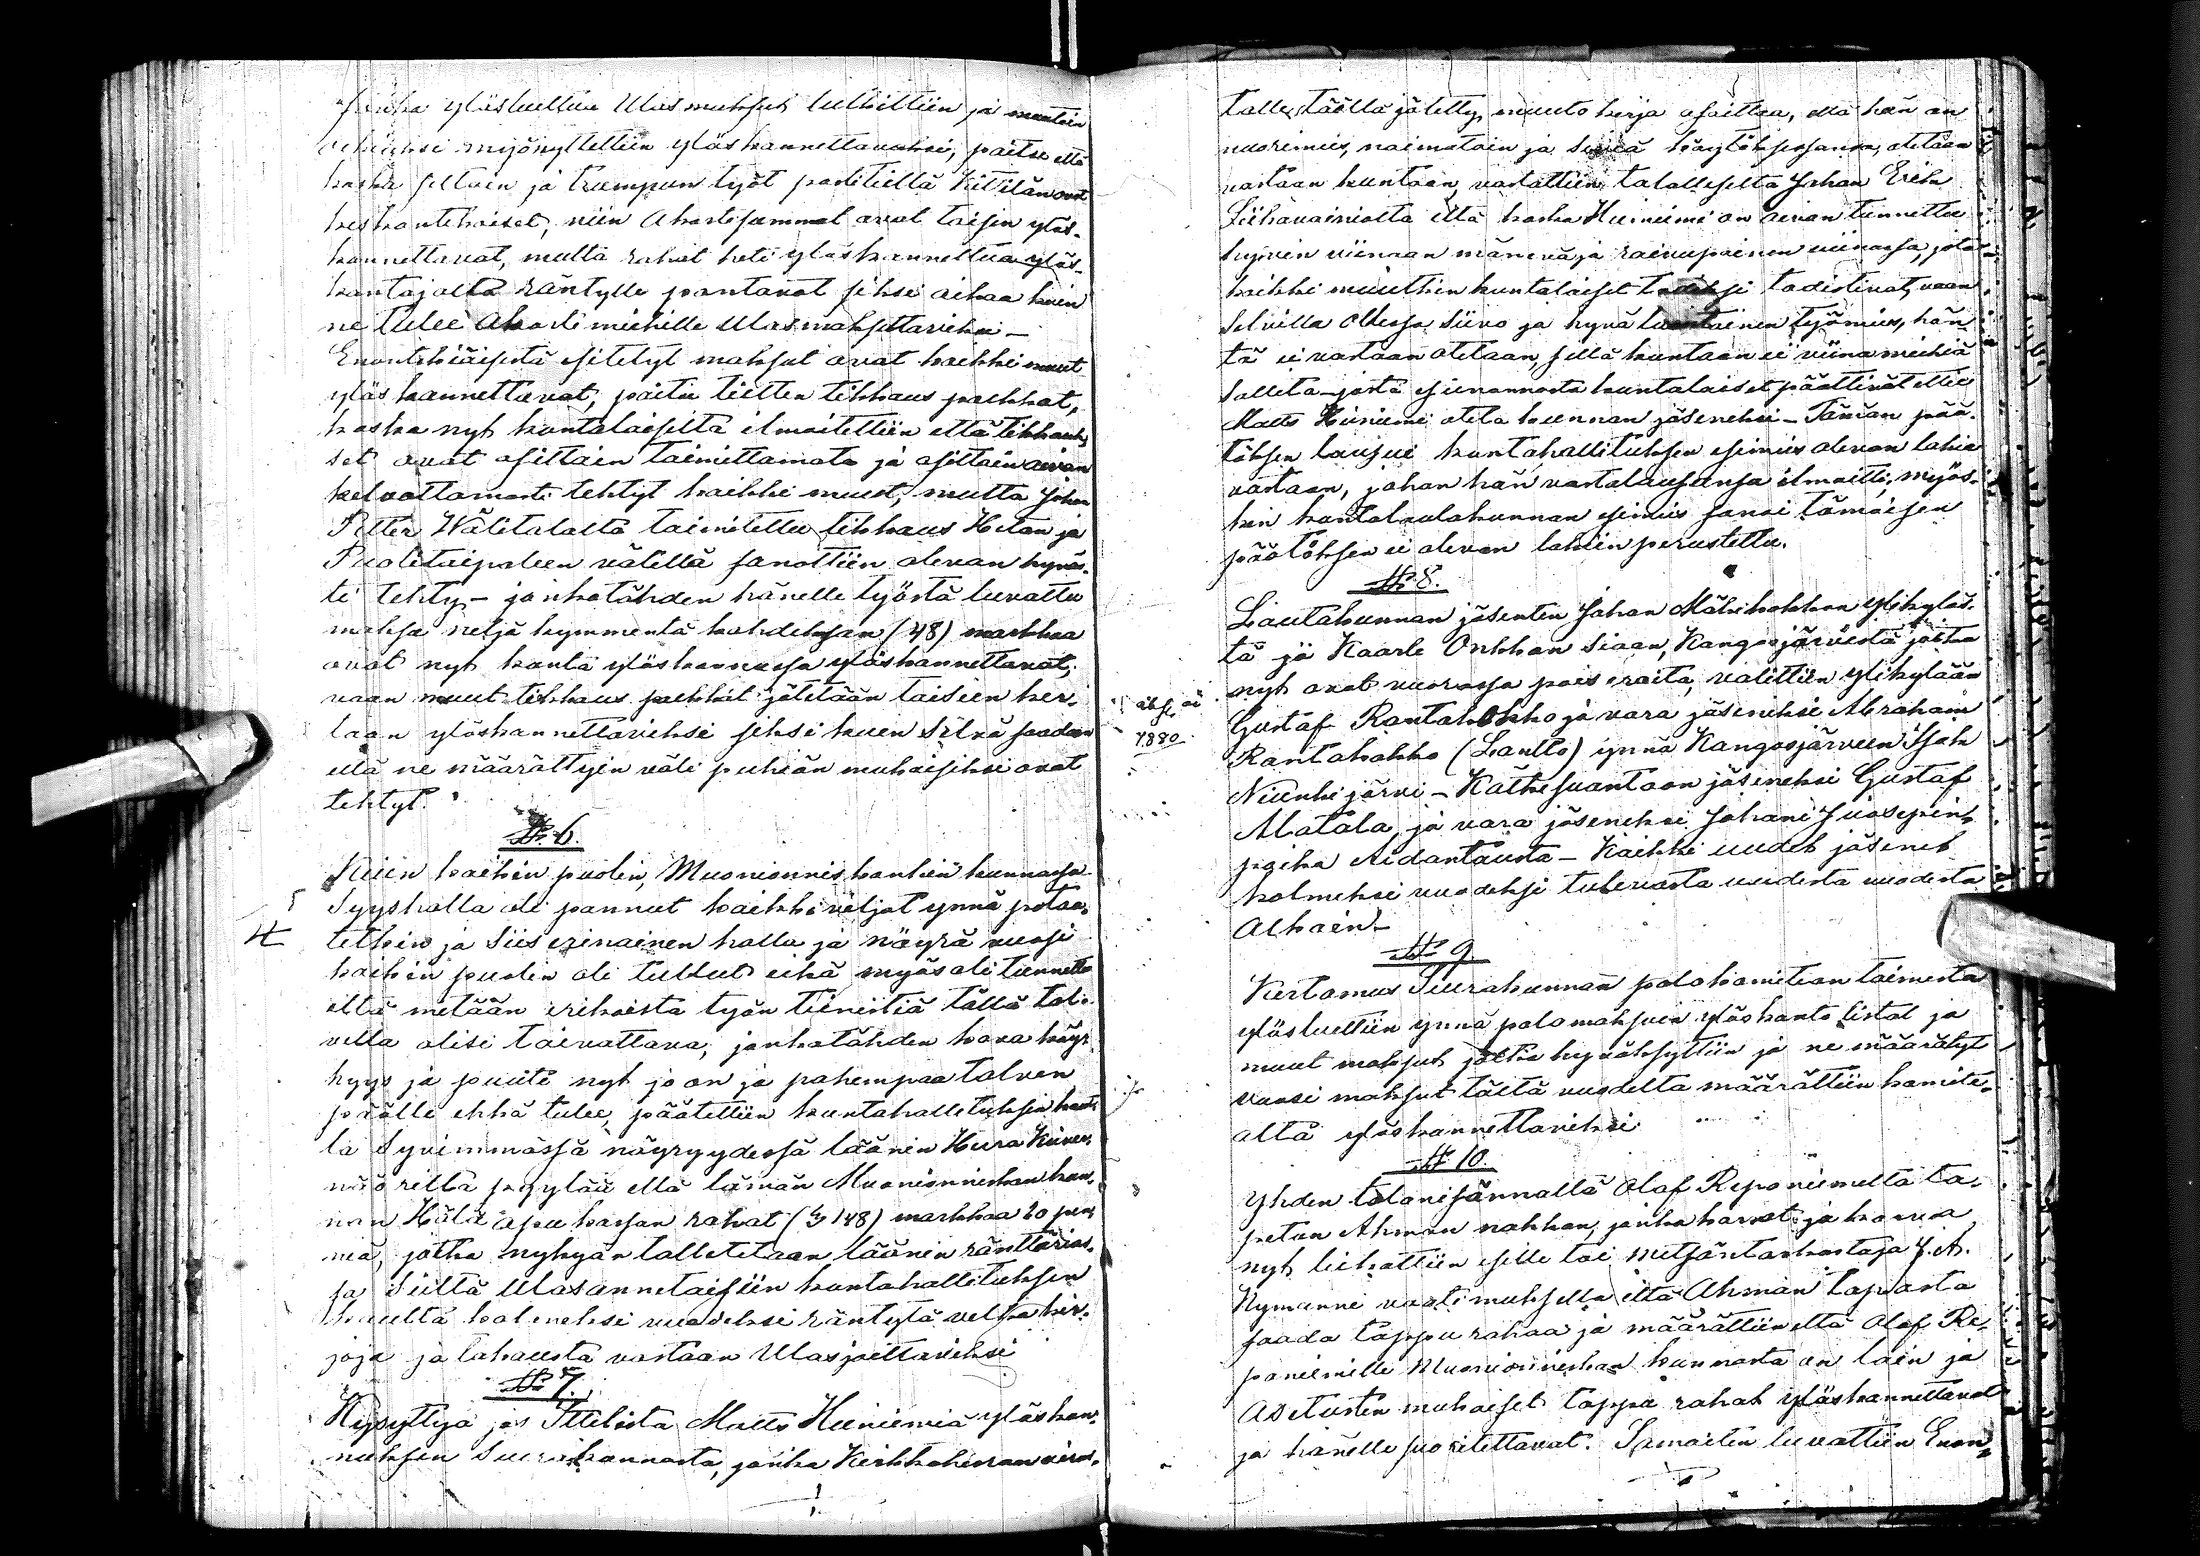 ylösluettua Ulosmaksut luthittiin ja
myönnyttettiin ylöskannettaviksi, paitse että
koska siltain ja trumpun työt postitiellä Kittilän ovat
keskentekoiset, niin Akortisummat ovat taisin ylös-
kannettavat, mutta rahat heti ylöskannettua ylös-
kantajalta räntylle pantavat siksi aikaa kuin
ne tulee Akorti miehille Ulosmaksettaviksi –
Enontekiäisestä esitetyt maksut ovat kaikki muut
ylöskannettavat; paitse teitten tikkaus palkkat,
koska nyt kuntalaisilta ilmoitettiin että tikkauk-
set ovat osittain toimittamata ja osittain aivan
kelvottomasti tehtyt kaikki muut, mutta Johan
Petter Wälitalolta toimitettu tikkaus Hetan ja
Puolitaipaleen välillä sanottiin olevan hyväs-
ti tehty – jonkatähden hänelle työstä luvattu
maksu neljä kymmentä kahdeksan (48) markkaa
ovat nyt kanta ylöskannossa ylöskannettavat;
vaan muut tikkaus palkkat jätetään taiseen ker-
taan ylöskannettaviksi siksi kuin selvä saadaan
että ne määrättyin väli puhein mukaiseksi ovat
tehtyt.
№ 6.
Kuin kaikin puolin, Muonionniskankin kunnassa
Syyshalla oli pannut kaikki viljat ynnä potaa-
tetkin ja siis erinainen halla ja nöyrä vuosi
kaikin puolin oli tullut eikä myös oli tunnettu
että mitään erikoista työn tienestiä tällä tal-
vella olisi toivottava, jonkatähden kova köyh-
hyys ja puute nyt jo on ja pahempaa talven
päälle ehkä tulee, päätettiin kuntahallituksen kaut-
ta Syvimmässä nöyryydessä läänin Herra Kuver-
nöörilta pyytää että tämän Muonionniskan kun-
nan Hätä apu kassan rahat (148) markkaa 20 pen-
niä, jotka nykyän talletetaan läänin ränttärias-
sa sieltä Ulosannetaisiin kuntahallituksen
kautta kolmeksi vuodeksi räntytä velka kir-
joja ja takausta vastaan Ulosjaettaviksi
№ 7.
Kysyttyä jos Ittilista Matts Hieniemiä ylöskan-
nuksen Seurakunnasta, jonka Kirkkoherran viras-
talle, täällä jätetty, muuto kirja osoittaa, että hän on
nuorimies, naimatoin ja siviä käytöksesänsä, otetaan
vastaan kuntaan, vastattiin talolliselta Johan Erik
Liikavainiolta että koska Hieniemi on aivan tunnettu
hyvin viinaan menevä ja raivupäinen viinassa, jota
kaikki muutkin kuntalaiset todeksi todistivat, vaan
selvillä ollessa siivo ja hyvä luontainen työmies, hän-
tä ei vastaan oteta, sillä kuntaan ei viina miehiä
salleta – josta esiinannosta kuntalaiset päättivät ettei
Matts Hieniemi oteta kunnan jäseneksi – Tämän pää-
töksen lausui kuntahallituksen esimies olevan lakia
vastaan, johon hän vastalausensa ilmoitti, myös-
kin kuntalautakunnan esimies sanoi tämäisen
päätöksen ei olevan lakiin perustettu.
№ 8.
Lautakunnan jäsenten Johan Mäkikokkon ylikyläs-
tä ja Kaarle Onkkan siaan, Kangosjärvestä jotka
nyt ovat vuorossa pois eroita, valittiin ylikylään
Gustaf Rantakokko ja vara jäseneksi Abraham
Rantakokko (Lautto) ynnä Kangosjärveen Isak
Niemkijärvi – Kätkesuantoon jäseneksi Gustaf
Alatalo, ja vara jäseneksi Johani Juosepin-
poika Aidantausta – Kaikki uudet jäsenet
kolmeksi vuodeksi tulevasta uudesta vuodesta
Alkain –
1880
№ 9.
Kertomus Seurakunnan palokomitean toimesta
ylösluettiin ynnä palomaksuin ylöskanto listat ja
muut maksut jotka hyväksyttiin ja ne määrätyt
vuosi maksut tältä vuodelta määrättiin komite-
alta ylöskannettaviksi
№ 10.
Yhden talonisännältä Olaf Reponiemeltä ta-
petun Ahman nahkan, jonka karvat ja korvia
nyt leikattiin esille toi metsäntarkastaja J. A.
Nymanni vaatimuksella että Ahman taposta
saada tappu rahaa ja määrättiin että Olaf Re-
poniemille Muonionniskan kunnasta on lain ja
Asetusten mukaiset tappo rahat ylöskannettavat
ja hänelle suoritettavat. Samaten luvattiin Enon-